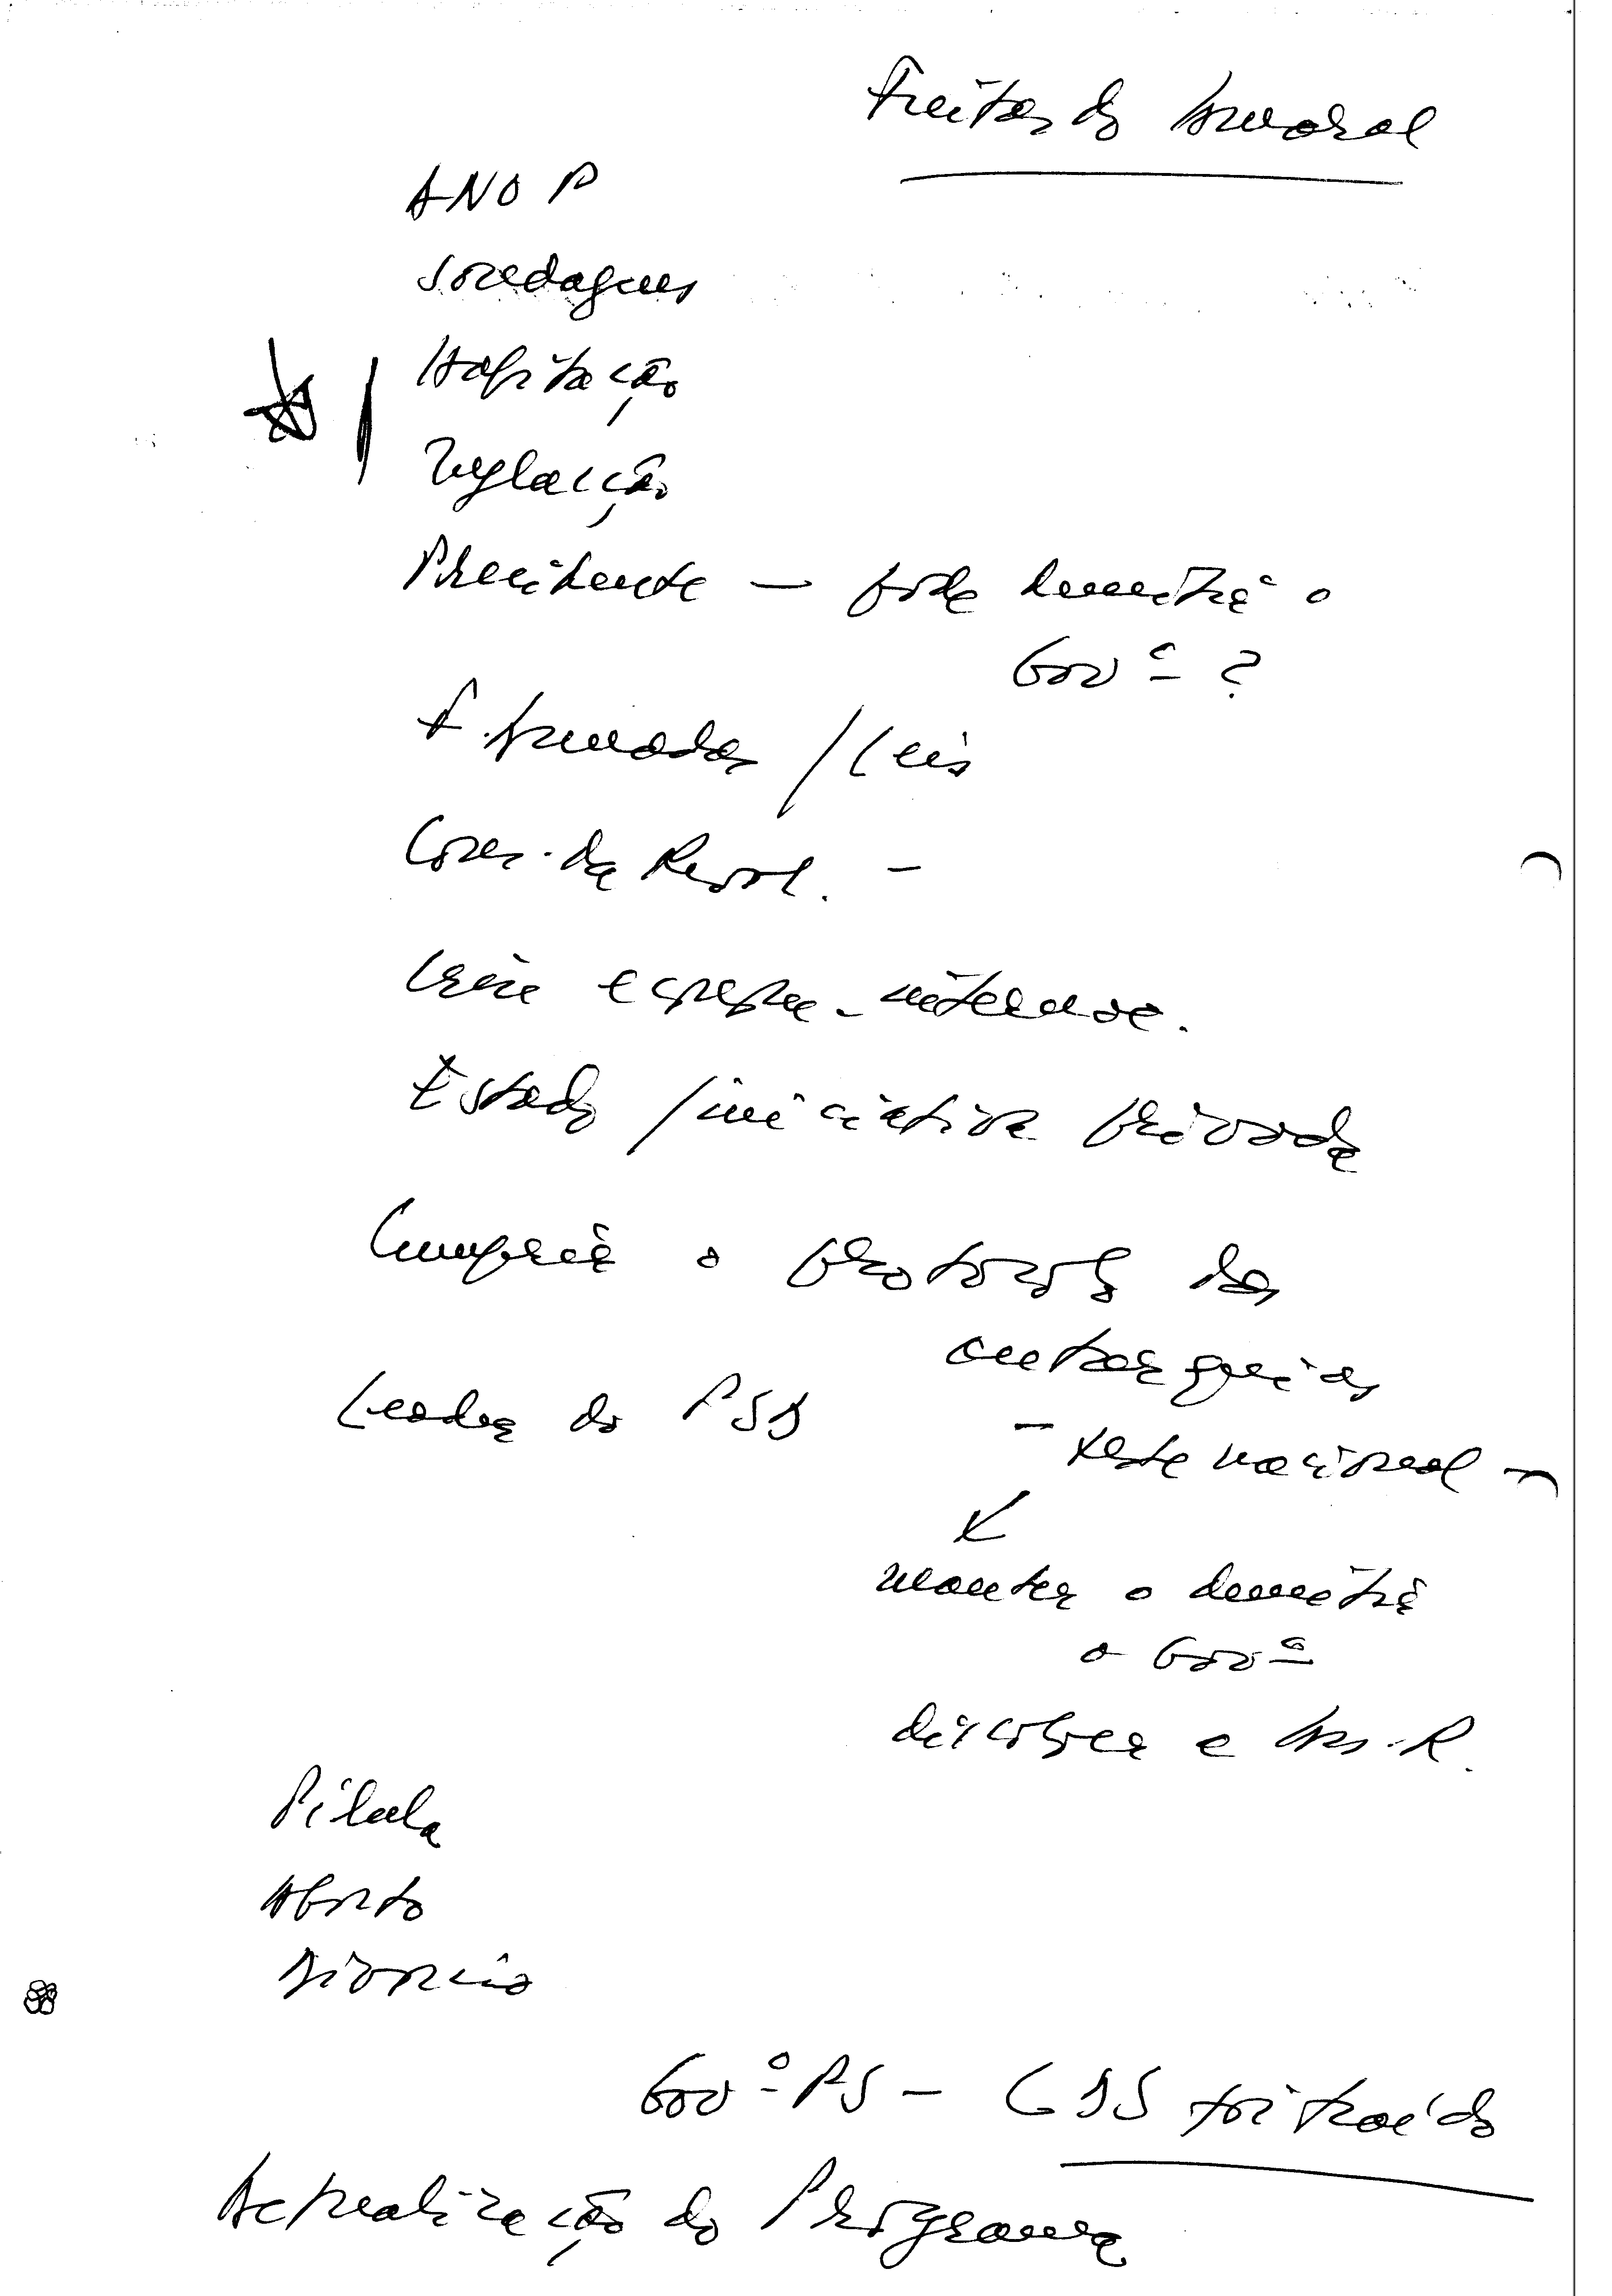 Freitas do Amaral
ANOP
Sondagens
Habitação
Legislação
Presidente — pode demitir o
Govº ?
F. Armadas / Leis
Cons. da Revol. —
Crise interna.
Estado / iniciativa privada
Cumprir o protocolo das
autarquias
Leader do PSD
— teste nacional —
manter o demitir
o Govº
dissolver a Ass. R.
Pílula
Aborto
Divórcio
Govº PS — CDS foi traído
Actualização do Programa